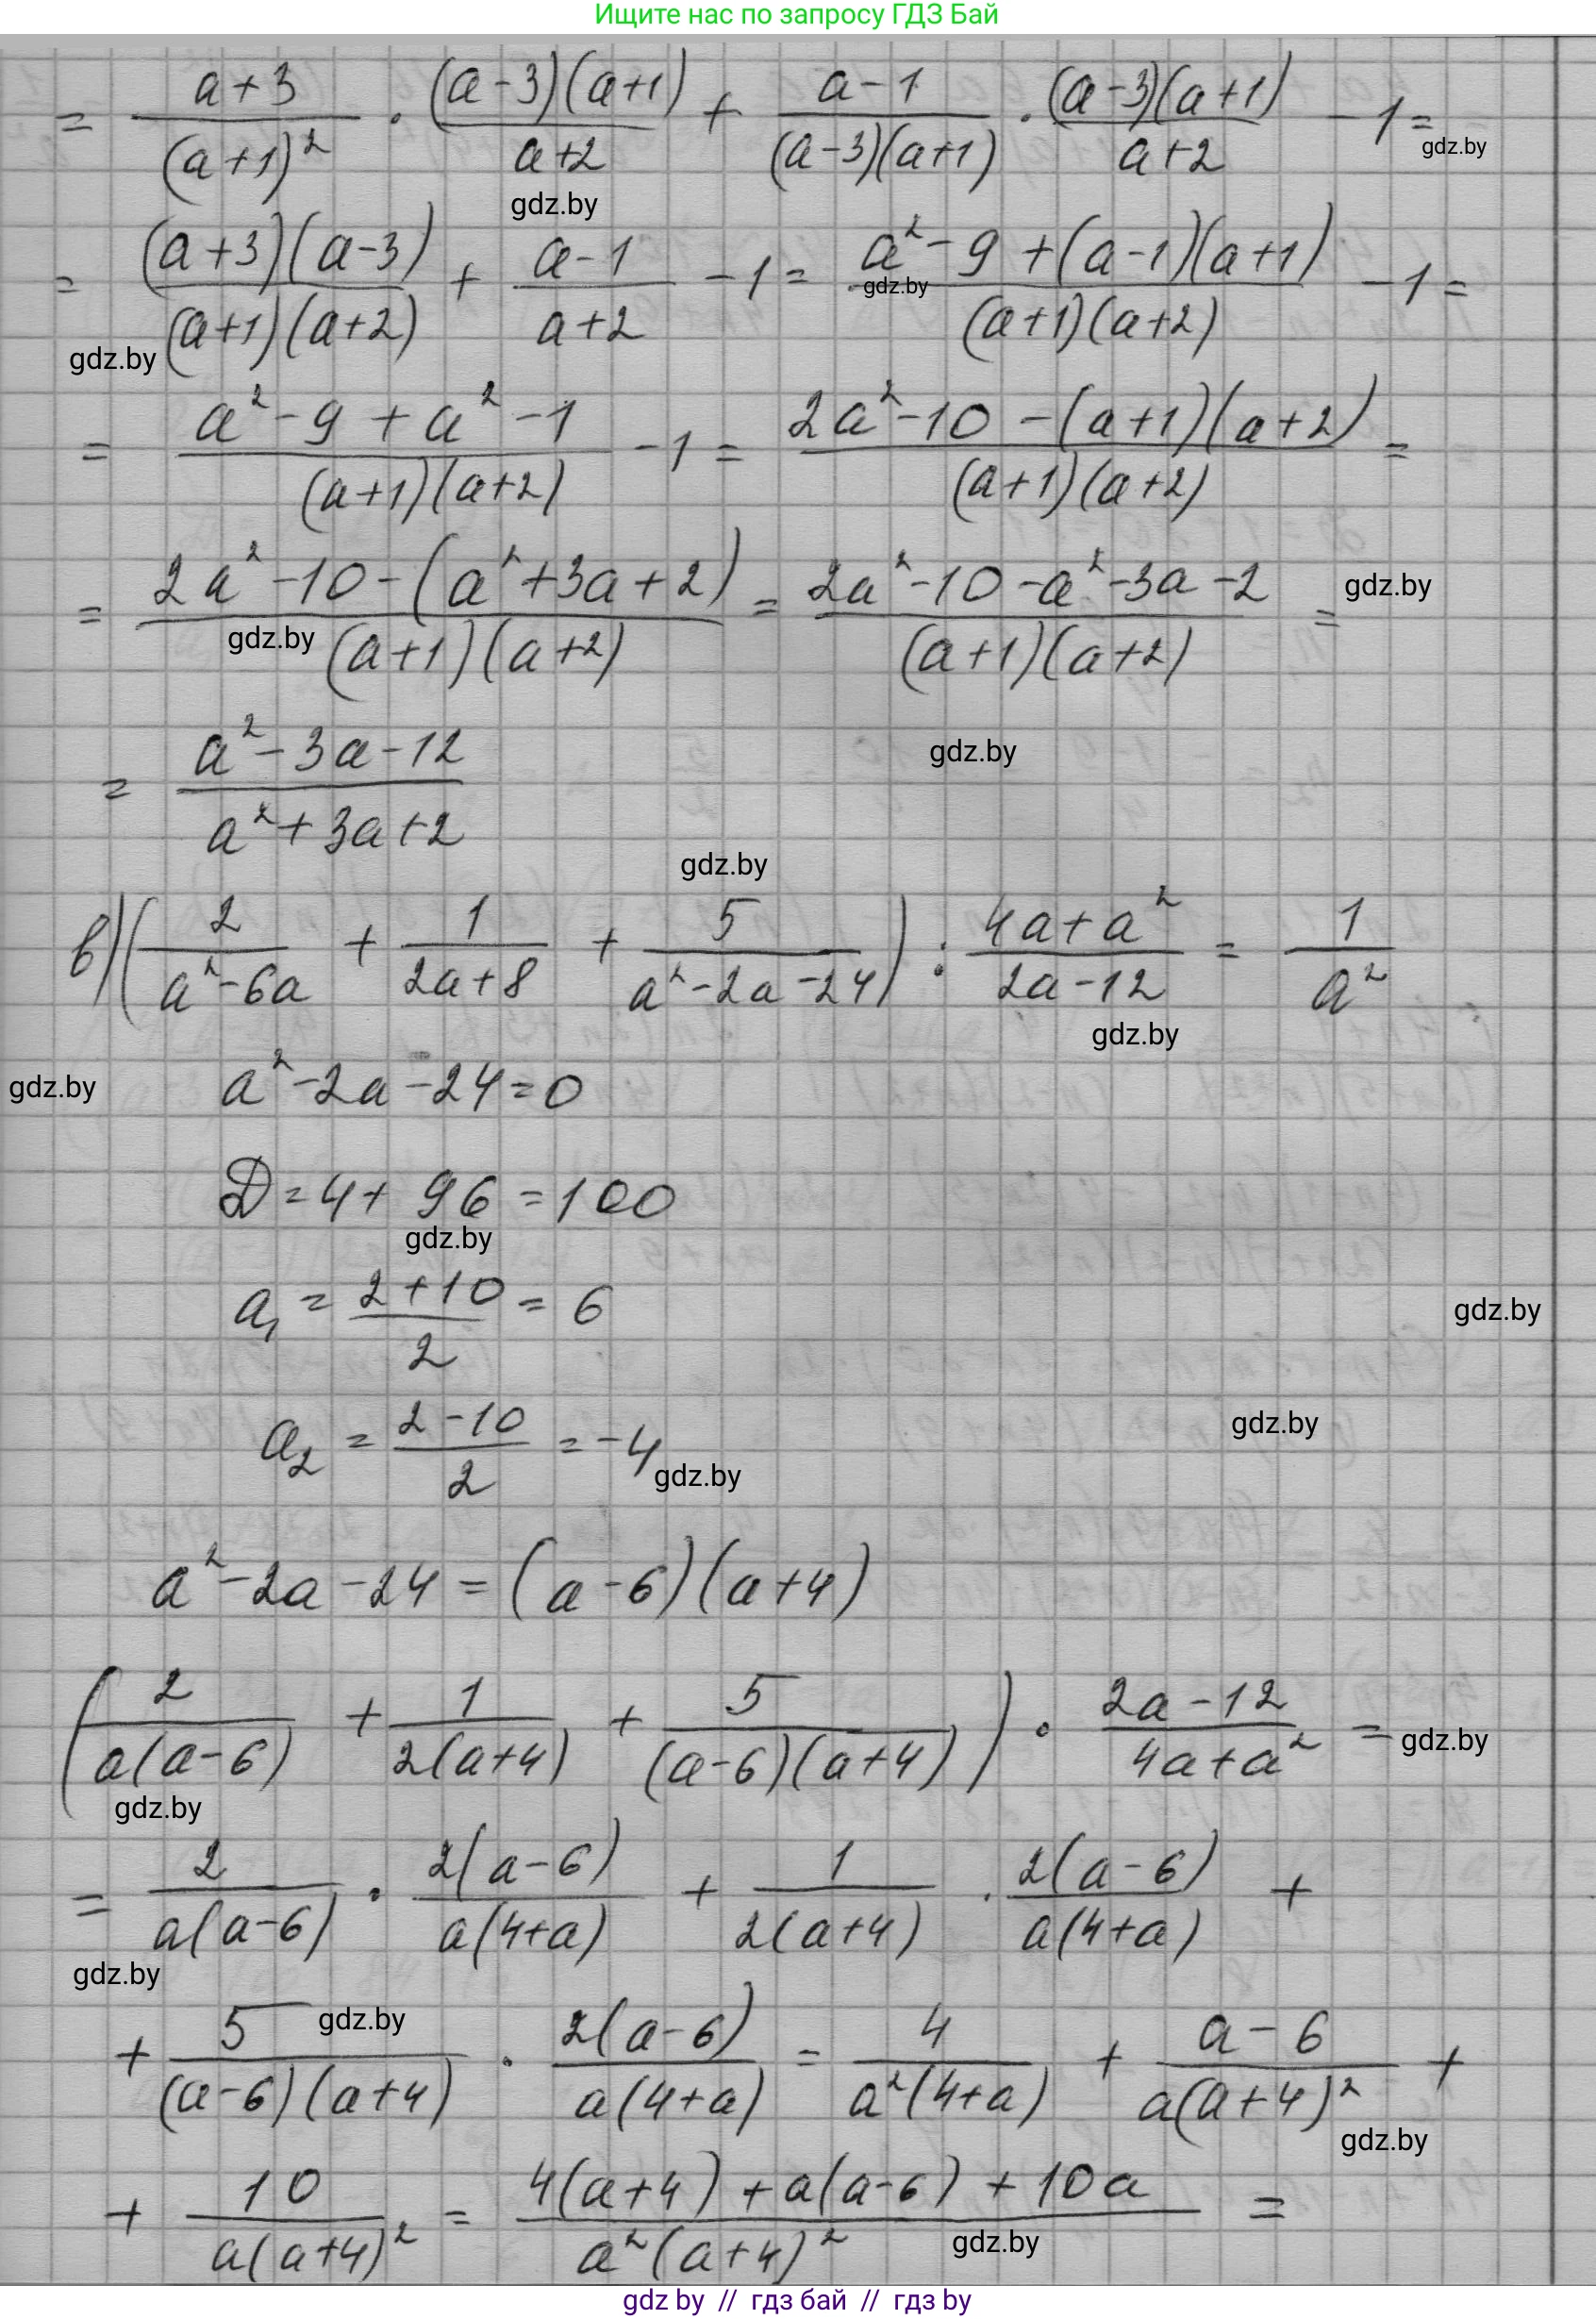 Ищите нас по запросу ГДЗ Бай
= (a+3)/(a+1)² · (a-3)(a+1)/(a+2) + (a-1)/((a-3)(a+1)) · (a-3)(a+1)/(a+2) - 1 =
gdz.by
gdz.by
= (a+3)(a-3)/((a+1)(a+2)) + (a-1)/(a+2) - 1 = (a²-9+(a-1)(a+1))/((a+1)(a+2)) - 1 =
gdz.by
gdz.by
= (a²-9+a²-1)/((a+1)(a+2)) - 1 = (2a²-10-(a+1)(a+2))/((a+1)(a+2)) =
= (2a²-10-(a²+3a+2))/((a+1)(a+2)) = (2a²-10-a²-3a-2)/((a+1)(a+2)) =
gdz.by
gdz.by
= (a²-3a-12)/(a²+3a+2)
gdz.by
gdz.by
в) (2/(a²-6a) + 1/(2a+8) + 5/(a²-2a-24)) : (4a+a²)/(2a-12) = 1/a²
gdz.by
a²-2a-24=0
gdz.by
D=4+96=100
gdz.by
a₁ = (2+10)/2 = 6
gdz.by
a₂ = (2-10)/2 = -4
gdz.by
gdz.by
a²-2a-24=(a-6)(a+4)
(2/(a(a-6)) + 1/(2(a+4)) + 5/((a-6)(a+4))) · (2a-12)/(4a+a²) =
gdz.by
gdz.by
= 2/(a(a-6)) · 2(a-6)/(a(4+a)) + 1/(2(a+4)) · 2(a-6)/(a(4+a)) +
gdz.by
gdz.by
+ 5/((a-6)(a+4)) · 2(a-6)/(a(4+a)) = 4/(a²(4+a)) + (a-6)/(a(a+4)²) +
gdz.by
+ 10/(a(a+4)²) = (4(a+4)+a(a-6)+10a)/(a²(a+4)²) =
gdz.by
gdz by // гдз бай // гдз by